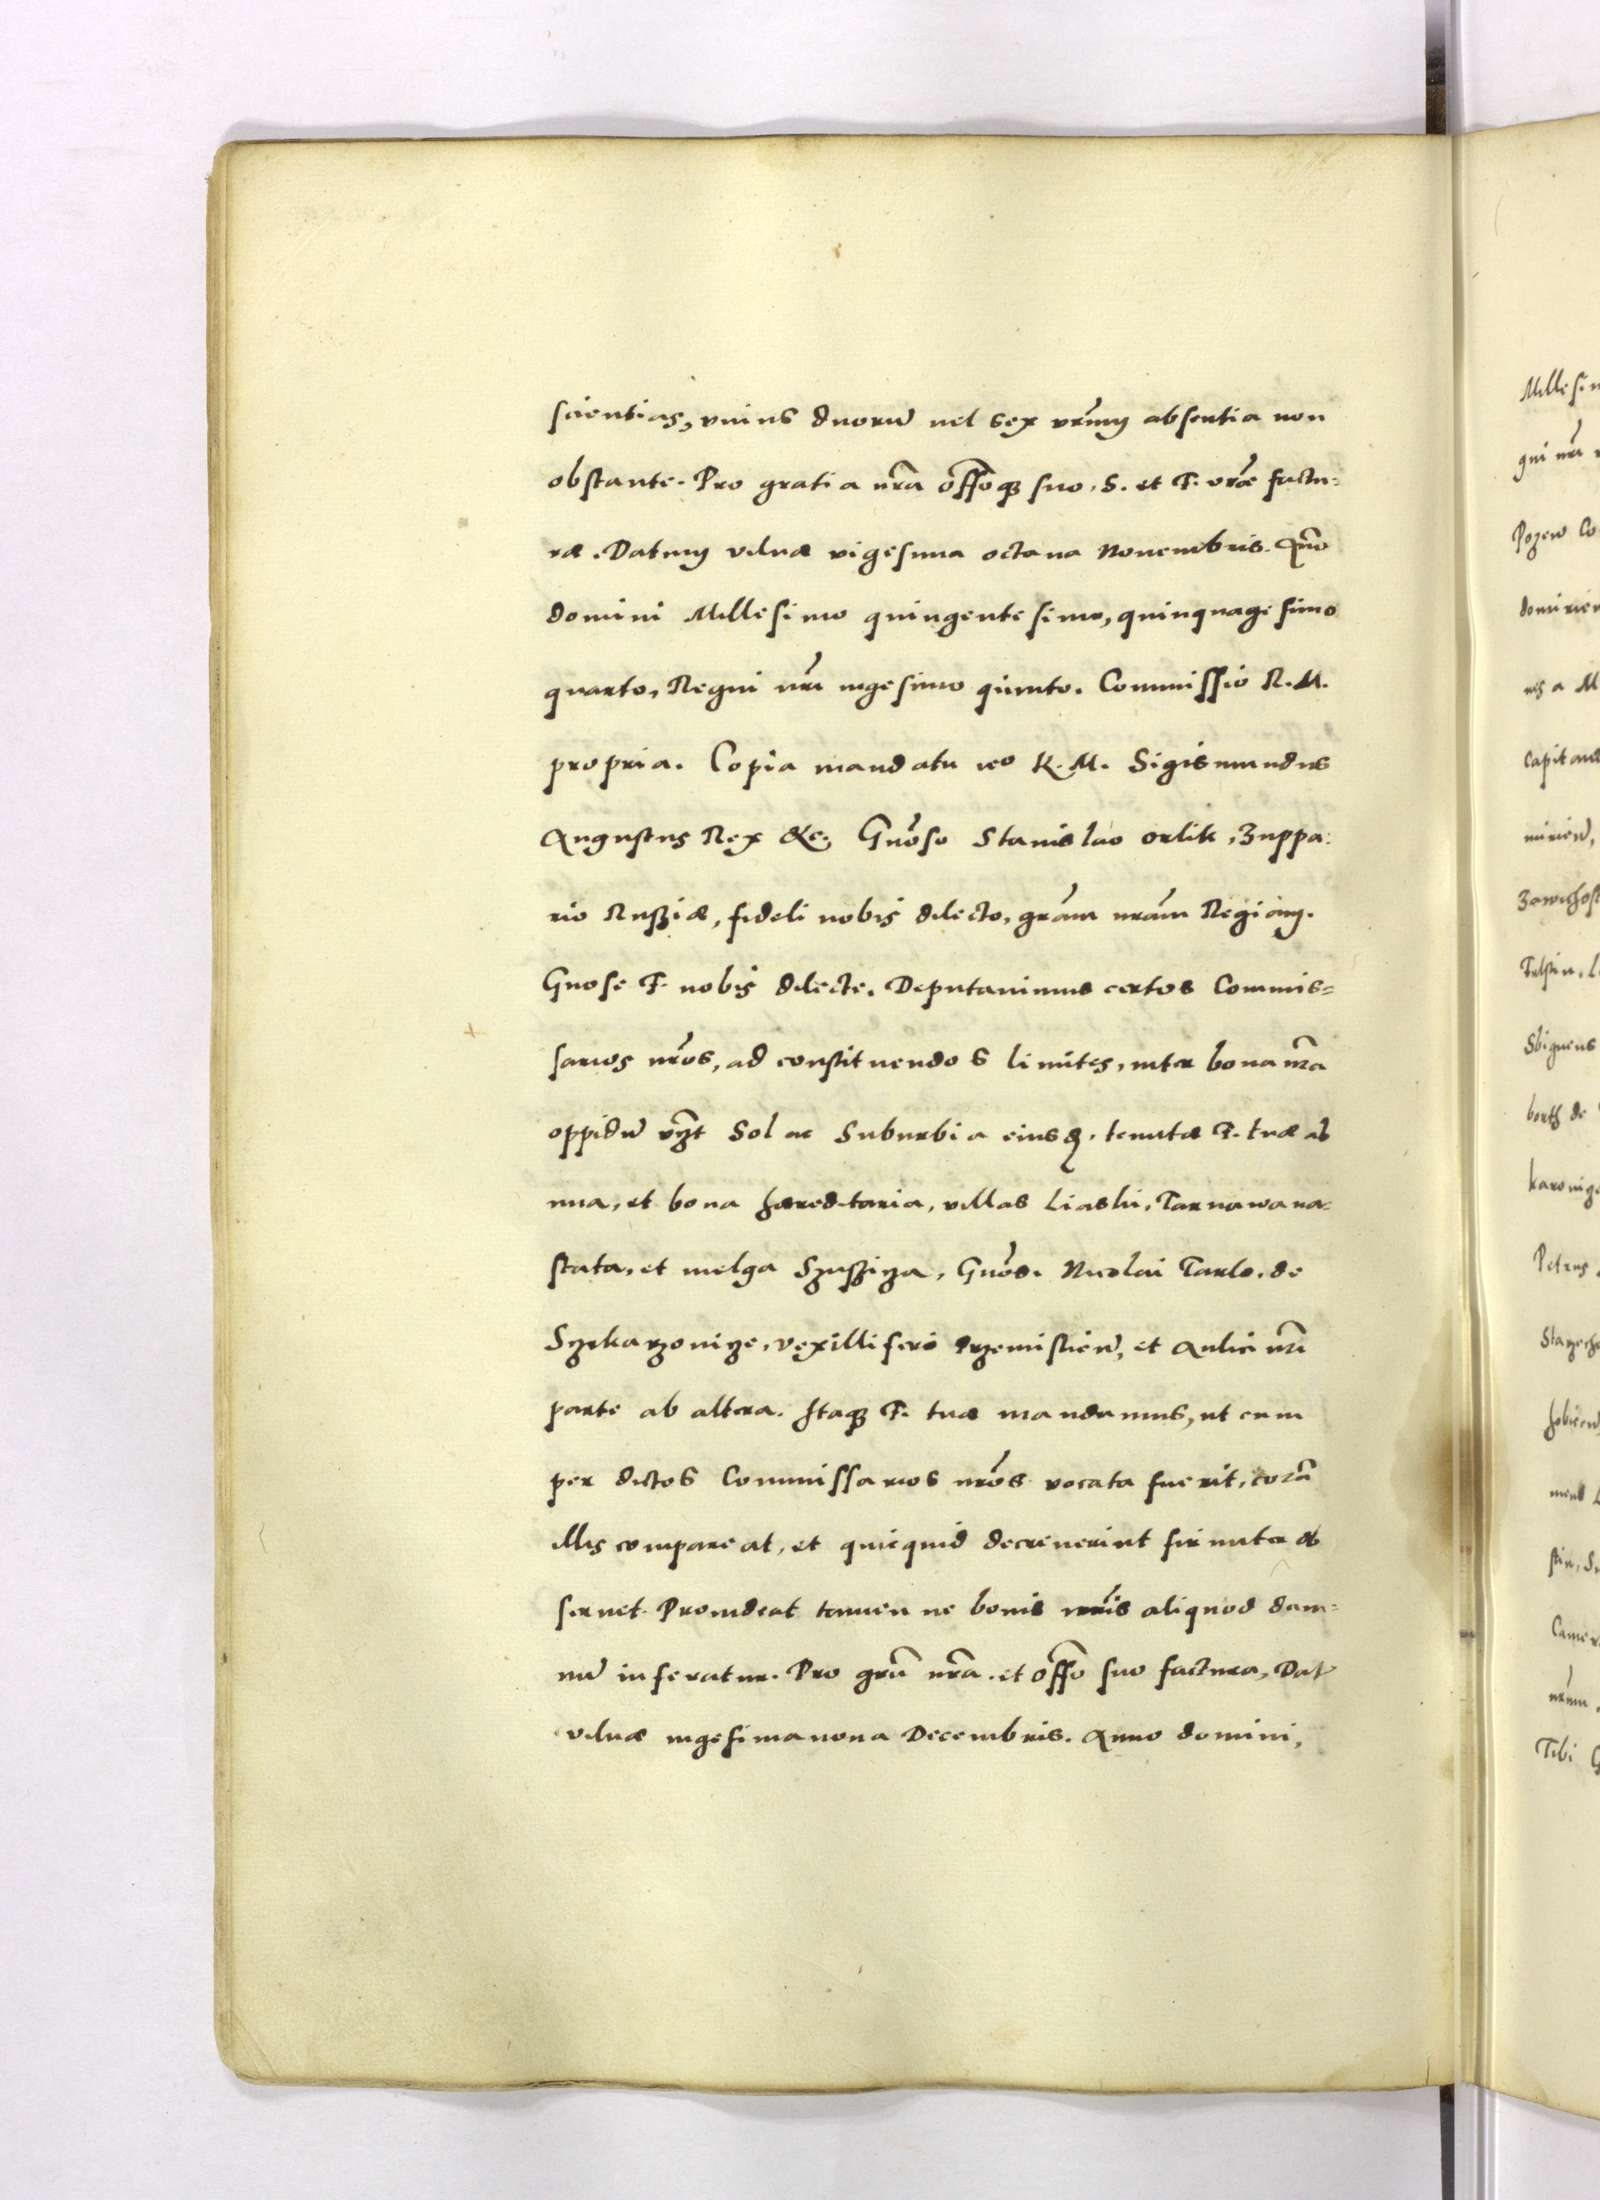 scientias, vnius duorũ uel sex vrm̃ absentia non
obstante. Pro gratia nr̃a offõq₃ suo. S. et F. vræ̃ factu=
ræ. Datum vilnæ vigesima octaua Nouembris. Ann̄o
domini Millesimo quingentesimo, quinquagesimo
quarto, Regni nr̃i uigesimo quinto. Commissio R. M.
propria. Copia mandatu reo K. M. Sigismundus
Augustus Rex &c. Gnõso Stanislao orlik, Zuppa:
rio Rußiæ, fideli nobis dilecto, grãm nrãm Regiam.
Gnose F. nobis dilecte. Deputauimus certos Commis=
sarios nr̃os, ad constituendos limites, inter bona nr̃a
oppidũ vzt Sol ac Suburbia eiusq. tenutæ F. tuæ ab
una, et bona hæreditaria, villas Liaski, Tarnawa na=
stata, et melga Szußiza, Gnõs. Nicolai Tarlo. de
Szekarzouize, vexilliferi przemisliẽn, et Aulici nr̃i
parte ab altera. Itaq₃ F. tuæ mandamus, ut cum
per dictos Commissarios nr̃os vocata fuerit, corã
illis compareat, et quicquid decreuerint firmiter ob
seruet. Prouideat tamen ne bonis nr̃is aliquod dam=
nũ inferatur. Pro grã nr̃a. et offõ suo factura, Dat
vilnæ uigesima nona Decembris. Anno domini,
Millesim
qui nr̃i
Pozew Co
domirien
nes a M
Capitane
miriẽn,
Zawichost
Petrus
Tibi G